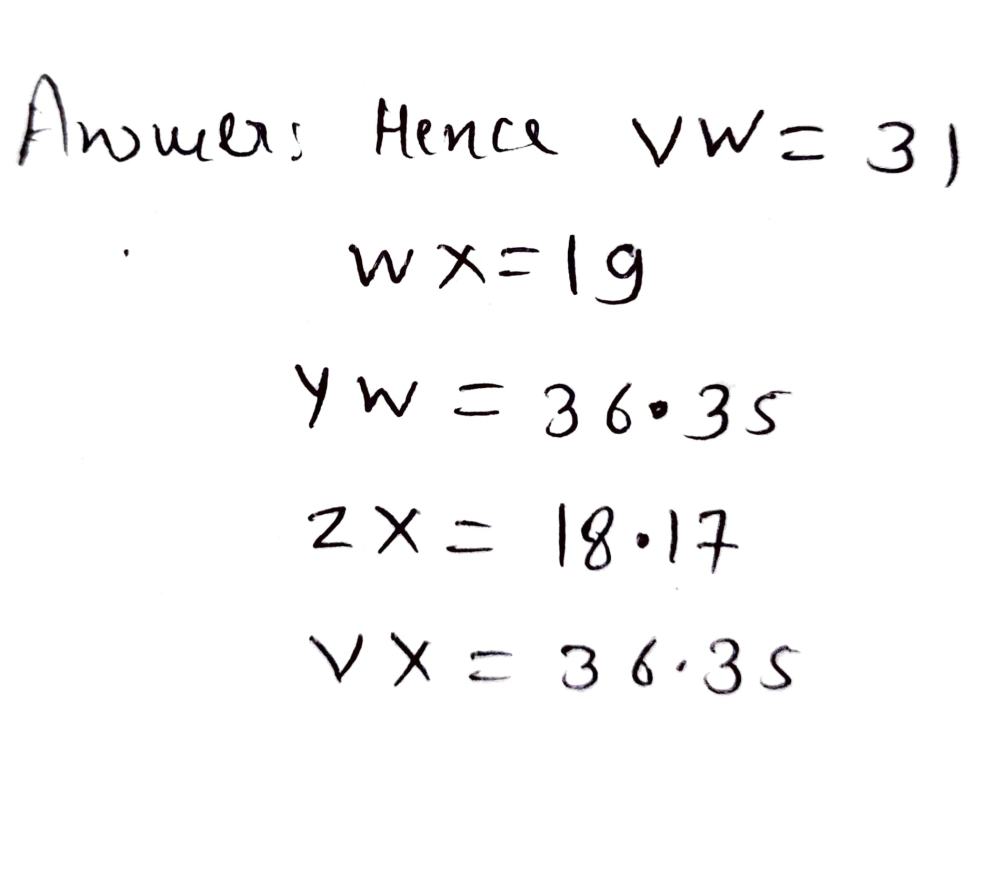 Answer: Hence VW = 31
WX = 19
YW = 36.35
ZX = 18.17
VX = 36.35